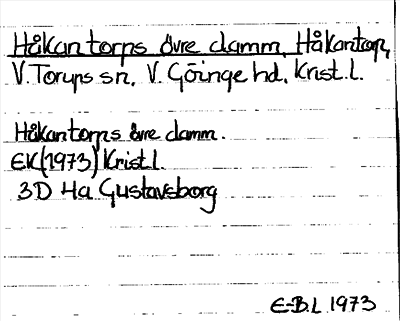 Håkantorps övre damm, Håkantorp,
V. Torups sn, V. Göinge hd, Krist. l.
Håkantorps övre damm.
EK(1973) Krist l.
3D 4a Gustavsborg
E-B.L 1973